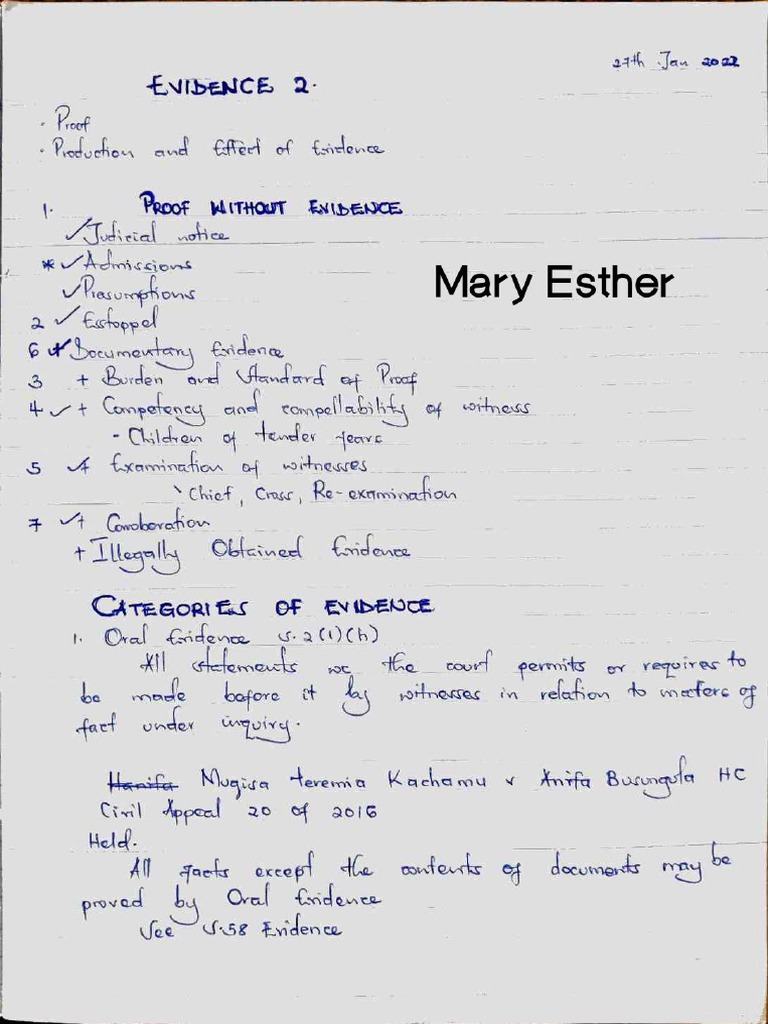 27th Jan 2022
EVIDENCE 2.
· Proof
· Production and Effect of Evidence
1. PROOF WITHOUT EVIDENCE
✓ Judicial notice
* ✓ Admissions
✓ Presumptions
Mary Esther
2 ✓ Esstoppel
6 + Documentary Evidence
3 + Burden and Standard of Proof
4 ✓ + Competency and compellability of witness
- Children of tender years
5 ✓ + Examination of witnesses
Chief, Cross, Re-examination
7 ✓ + Corroboration
+ Illegally Obtained Evidence
CATEGORIES OF EVIDENCE
1. Oral Evidence s.2(1)(h)
All statements wc the court permits or requires to
be made before it by witnesses in relation to matters of
fact under inquiry.
Hanifa Mugisa Teremia Kachamu v Anifa Busungula HC
Civil Appeal 20 of 2016
Held.
All facts except the contents of documents may be
proved by Oral Evidence
See s.58 Evidence